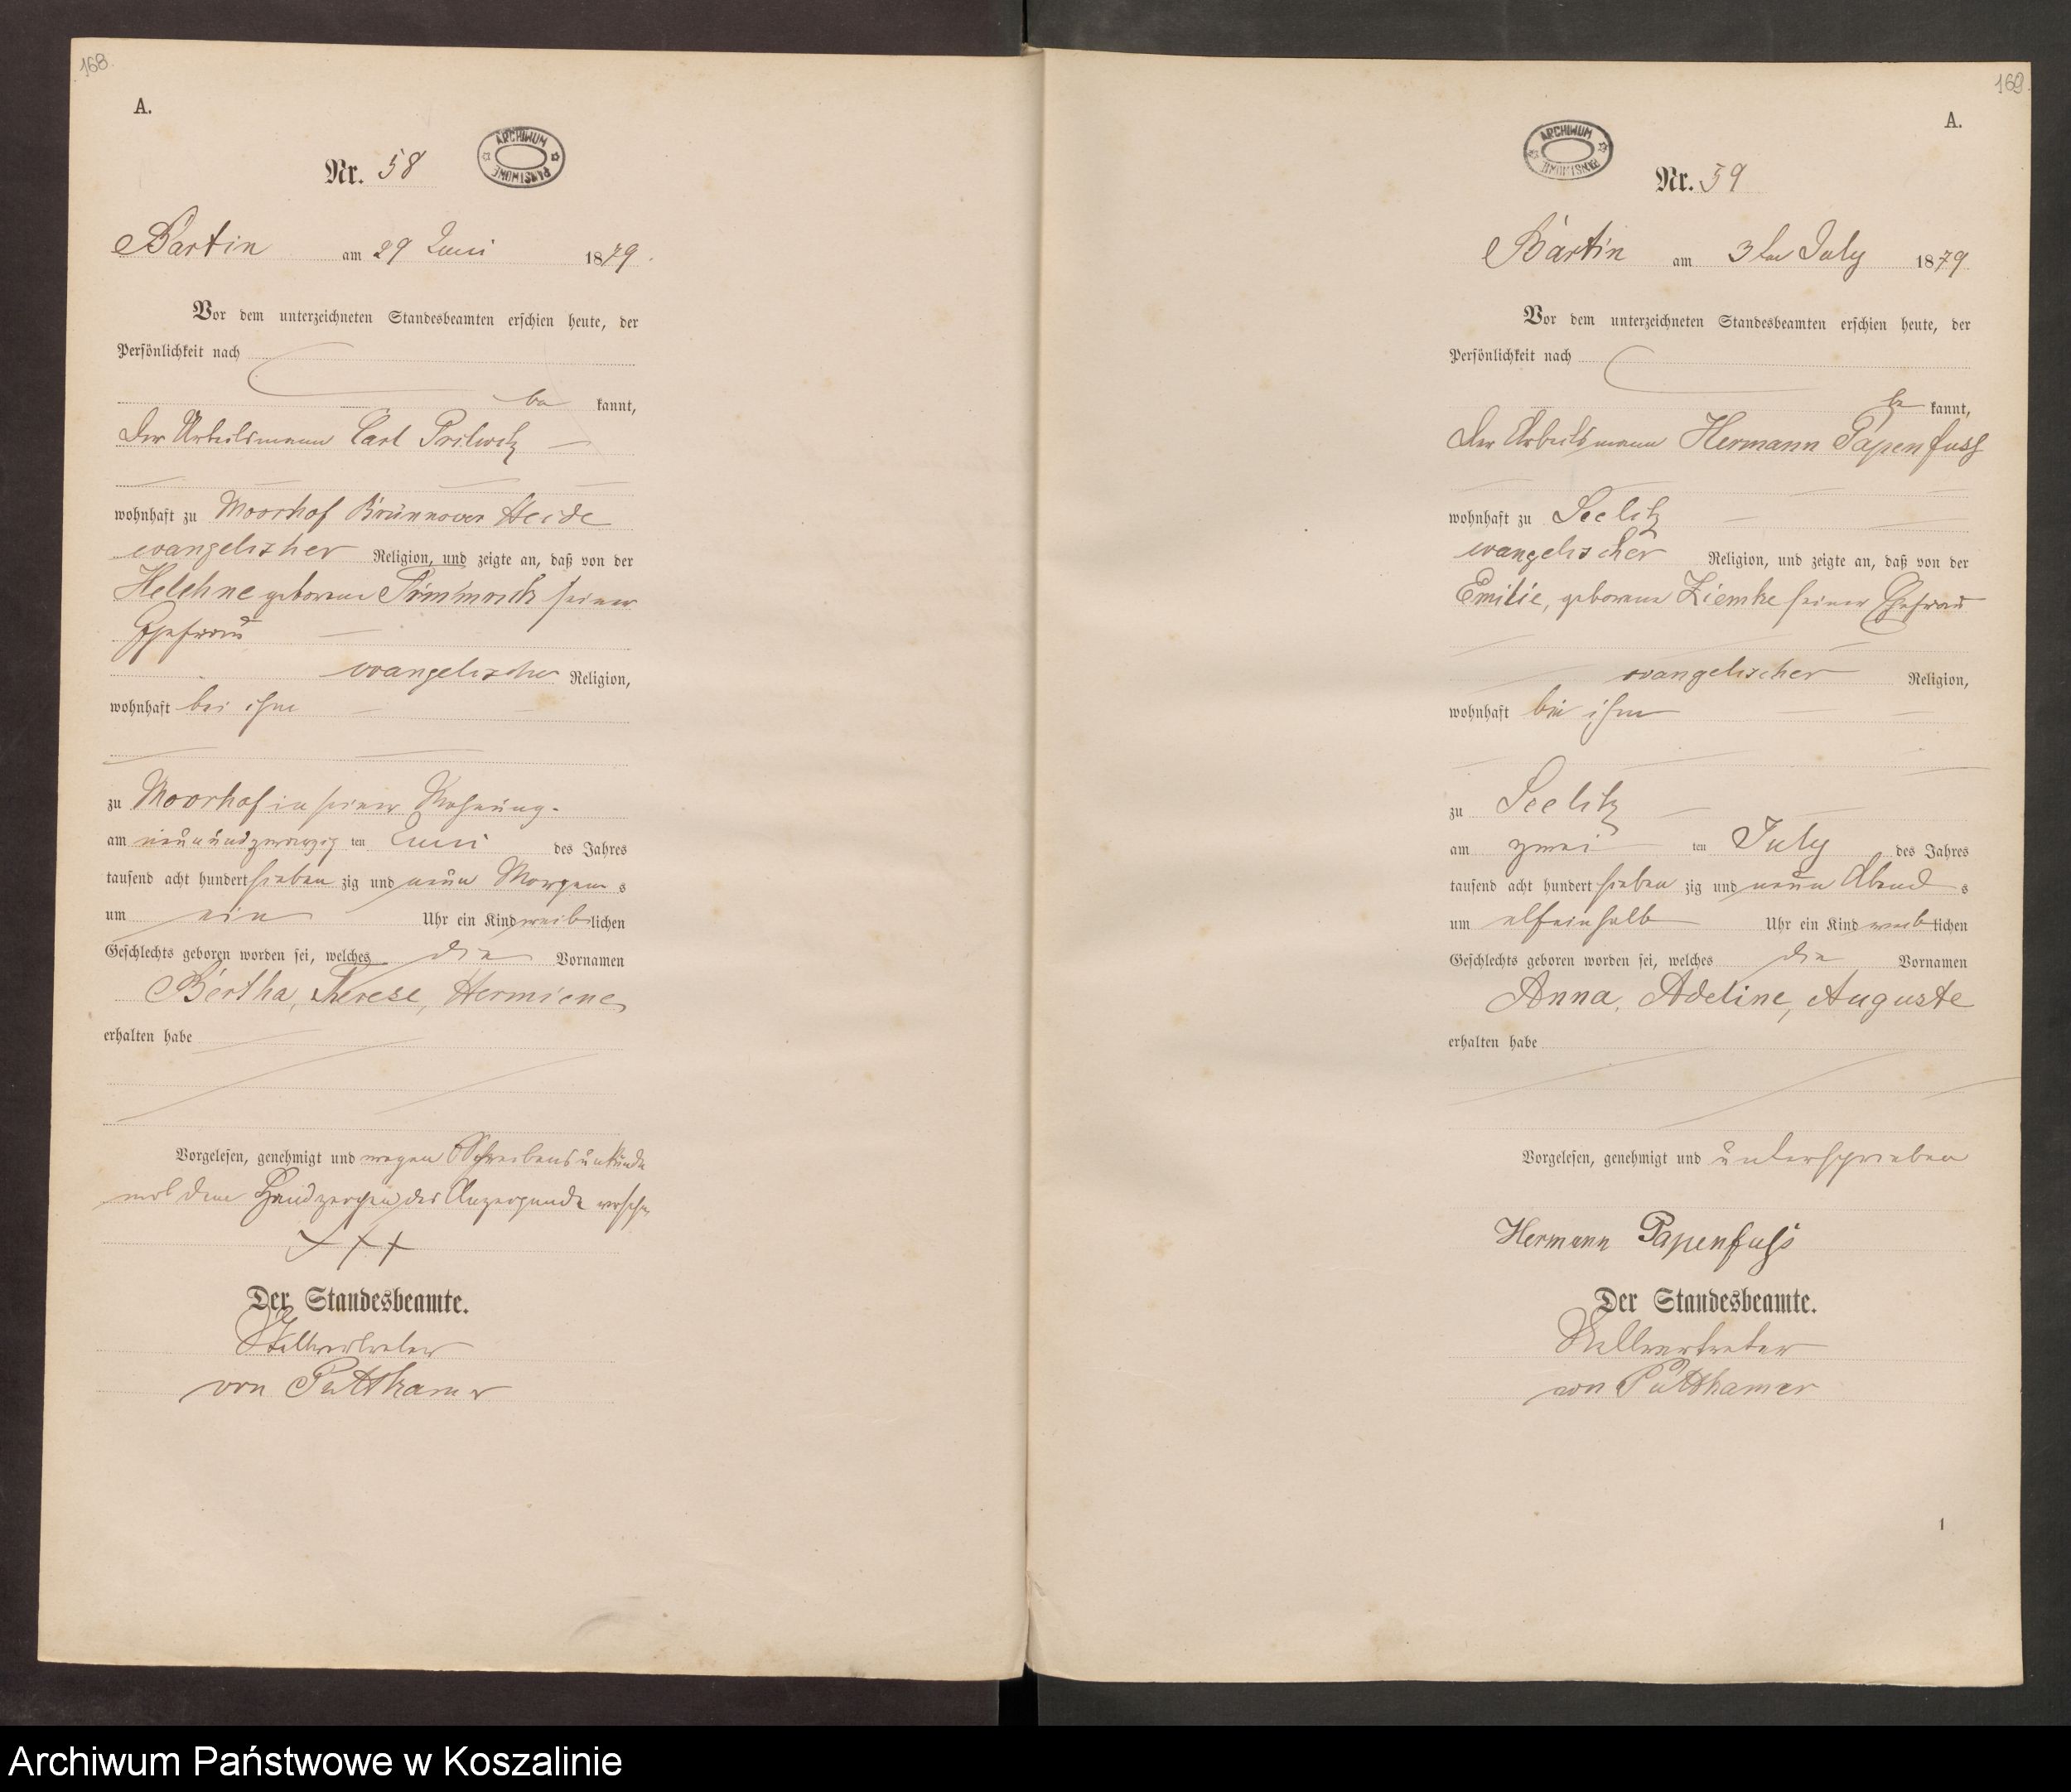 168.
A.
Nr. 58
ARCHIWUM PAŃSTWOWE
Bartin am 29 Juni 1879.
Vor dem unterzeichneten Standesbeamten erschien heute, der
Persönlichkeit nach
be kannt,
der Arbeitsmann Carl Prilwitz
wohnhaft zu Moorhof Brünnower Heide
evangelischer Religion, und zeigte an, daß von der
Helehne geborene seiner
Ehefrau
evangelischer Religion,
wohnhaft bei ihm
zu Moorhof in seiner Wohnung.
am neunundzwanzig ten Juni des Jahres
tausend acht hundert sieben zig und neun Morgens
um ein Uhr ein Kind weiblichen
Geschlechts geboren worden sei, welches die Vornamen
Bertha, Therese, Hermiene
erhalten habe
Vorgelesen, genehmigt und wegen Schreibensunkunde
mit dem Handzeichen des Anzeigende versehn
+ + +
Der Standesbeamte.
Stellvertreter
von Puttkamer
169.
A.
ARCHIWUM PAŃSTWOWE
Nr. 59
Bartin am 3ten July 1879
Vor dem unterzeichneten Standesbeamten erschien heute, der
Persönlichkeit nach
be kannt,
der Arbeitsmann Hermann Papenfuss
wohnhaft zu Seelitz
evangelischer Religion, und zeigte an, daß von der
Emilie, geborene Ziemke seiner Ehefrau
evangelischer Religion,
wohnhaft bei ihm
zu Seelitz
am zwei ten July des Jahres
tausend acht hundert sieben zig und neun Abends
um elfeinhalb Uhr ein Kind weiblichen
Geschlechts geboren worden sei, welches die Vornamen
Anna, Adeline, Auguste
erhalten habe
Vorgelesen, genehmigt und unterschrieben
Hermann Papenfuß
Der Standesbeamte.
Stellvertreter
von Puttkamer
1
Archiwum Państwowe w Koszalinie